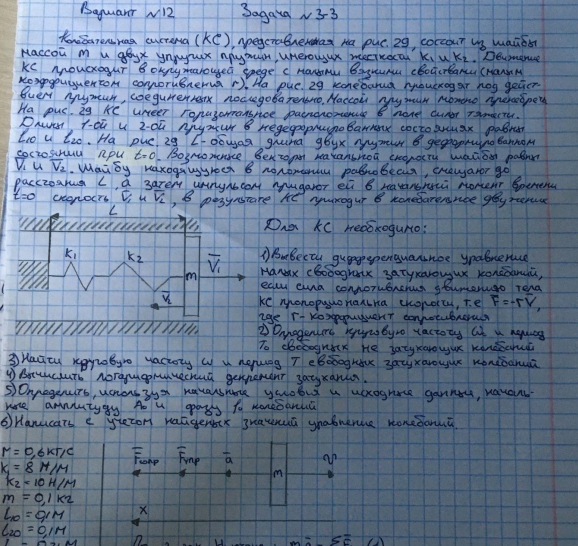 Вариант №12 Задача №3-3
Колебательная система (КС), представленная на рис. 29, состоит из шайбы
массой m и двух упругих пружин, имеющих жесткости k₁ и k₂. Движение
КС происходит в окружающей среде с малыми вязкими свойствами (малым
коэффициентом сопротивления r). На рис. 29 колебания происходят под дейст-
вием пружин, соединенных последовательно. Массой пружин можно пренебречь
На рис. 29 КС имеет горизонтальное расположение в поле силы тяжести.
Длины 1-ой и 2-ой пружин в недеформированных состояниях равны
l₁₀ и l₂₀. На рис. 29 L-общая длина двух пружин в деформированном
состоянии при t=0. Возможные векторы начальной скорости шайбы равны
V₁ и V₂. Шайбу находящуюся в положении равновесия, смещают до
расстояния L, а затем импульсом придают ей в начальный момент времени
t=0 скорость V₁ и V₂, в результате КС приходит в колебательное движение
L
k₁ k₂ m V̅₁
V̅₂
Для КС необходимо:
1) Вывести дифференциальное уравнение
малых свободных затухающих колебаний,
если сила сопротивления движению тела
КС пропорциональна скорости, т.е F̅=-rV̅,
где r-коэффициент сопротивления
2) Определить круговую частоту ω₀ и период
T₀ свободных не затухающих колебаний
3) Найти круговую частоту ω и период T свободных затухающих колебаний
4) Вычислить логарифмический декремент затухания.
5) Определить, используя начальные условия и исходные данные, началь-
ные амплитуду A₀ и фазу φ₀ колебаний
6) Написать с учетом найденых значений уравнение колебаний.
r = 0,6 кг/с
k₁ = 8 Н/м
k₂ = 10 Н/м
m = 0,1 кг
l₁₀ = 0,1 м
l₂₀ = 0,1 м
F̅сопр F̅упр a̅ m V̅
x